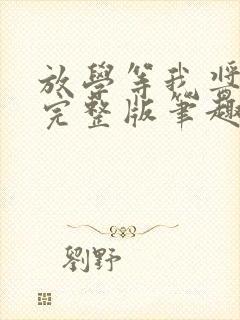 放學等我獎
完整版筆趣
劉野